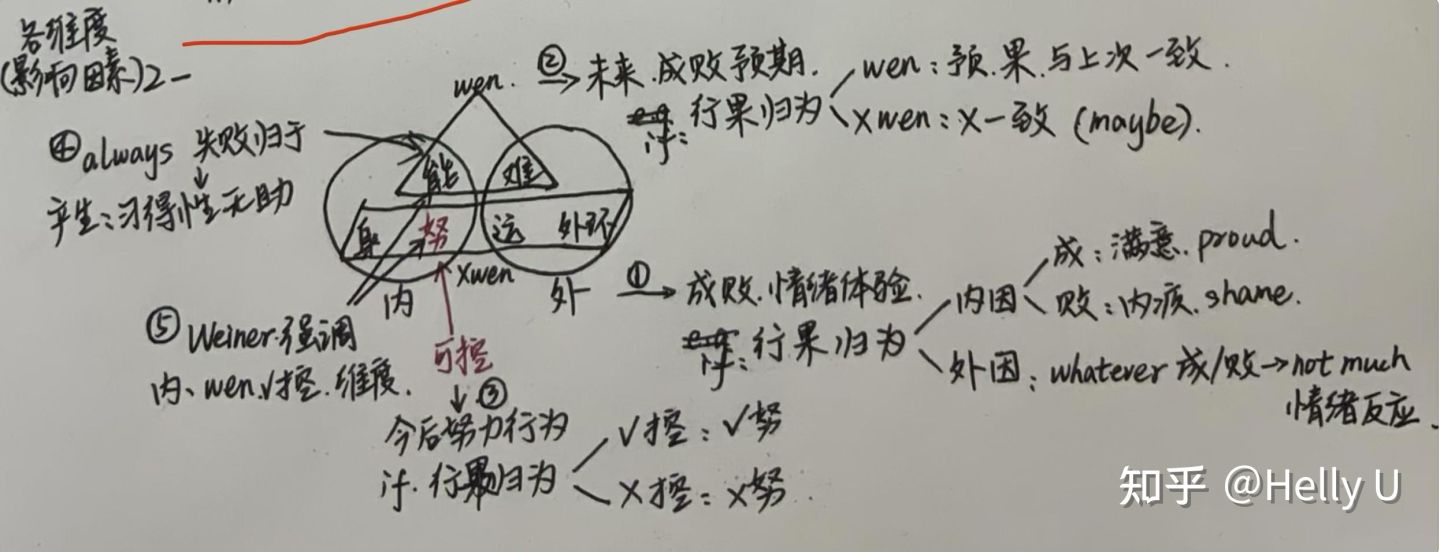 各维度
(影响因素)2一
wen.
② → 未来.成败预期.
wen：预.果.与上次一致.
if: 行果归为
xwen：X一致 (maybe).
④always 失败归于
产生：习得性无助
能 难
身 努 运 外环
xwen
内 外
① → 成败.情绪体验.
if: 行果归为
内因
成：满意. proud.
败：内疚. shame.
外因：whatever 成/败→not much
情绪反应.
⑤Weiner强调
内、wen.√控.维度.
可控
③
今后努力行为
if. 行果归为
√控：√努
X控：X努.
知乎 @Helly U